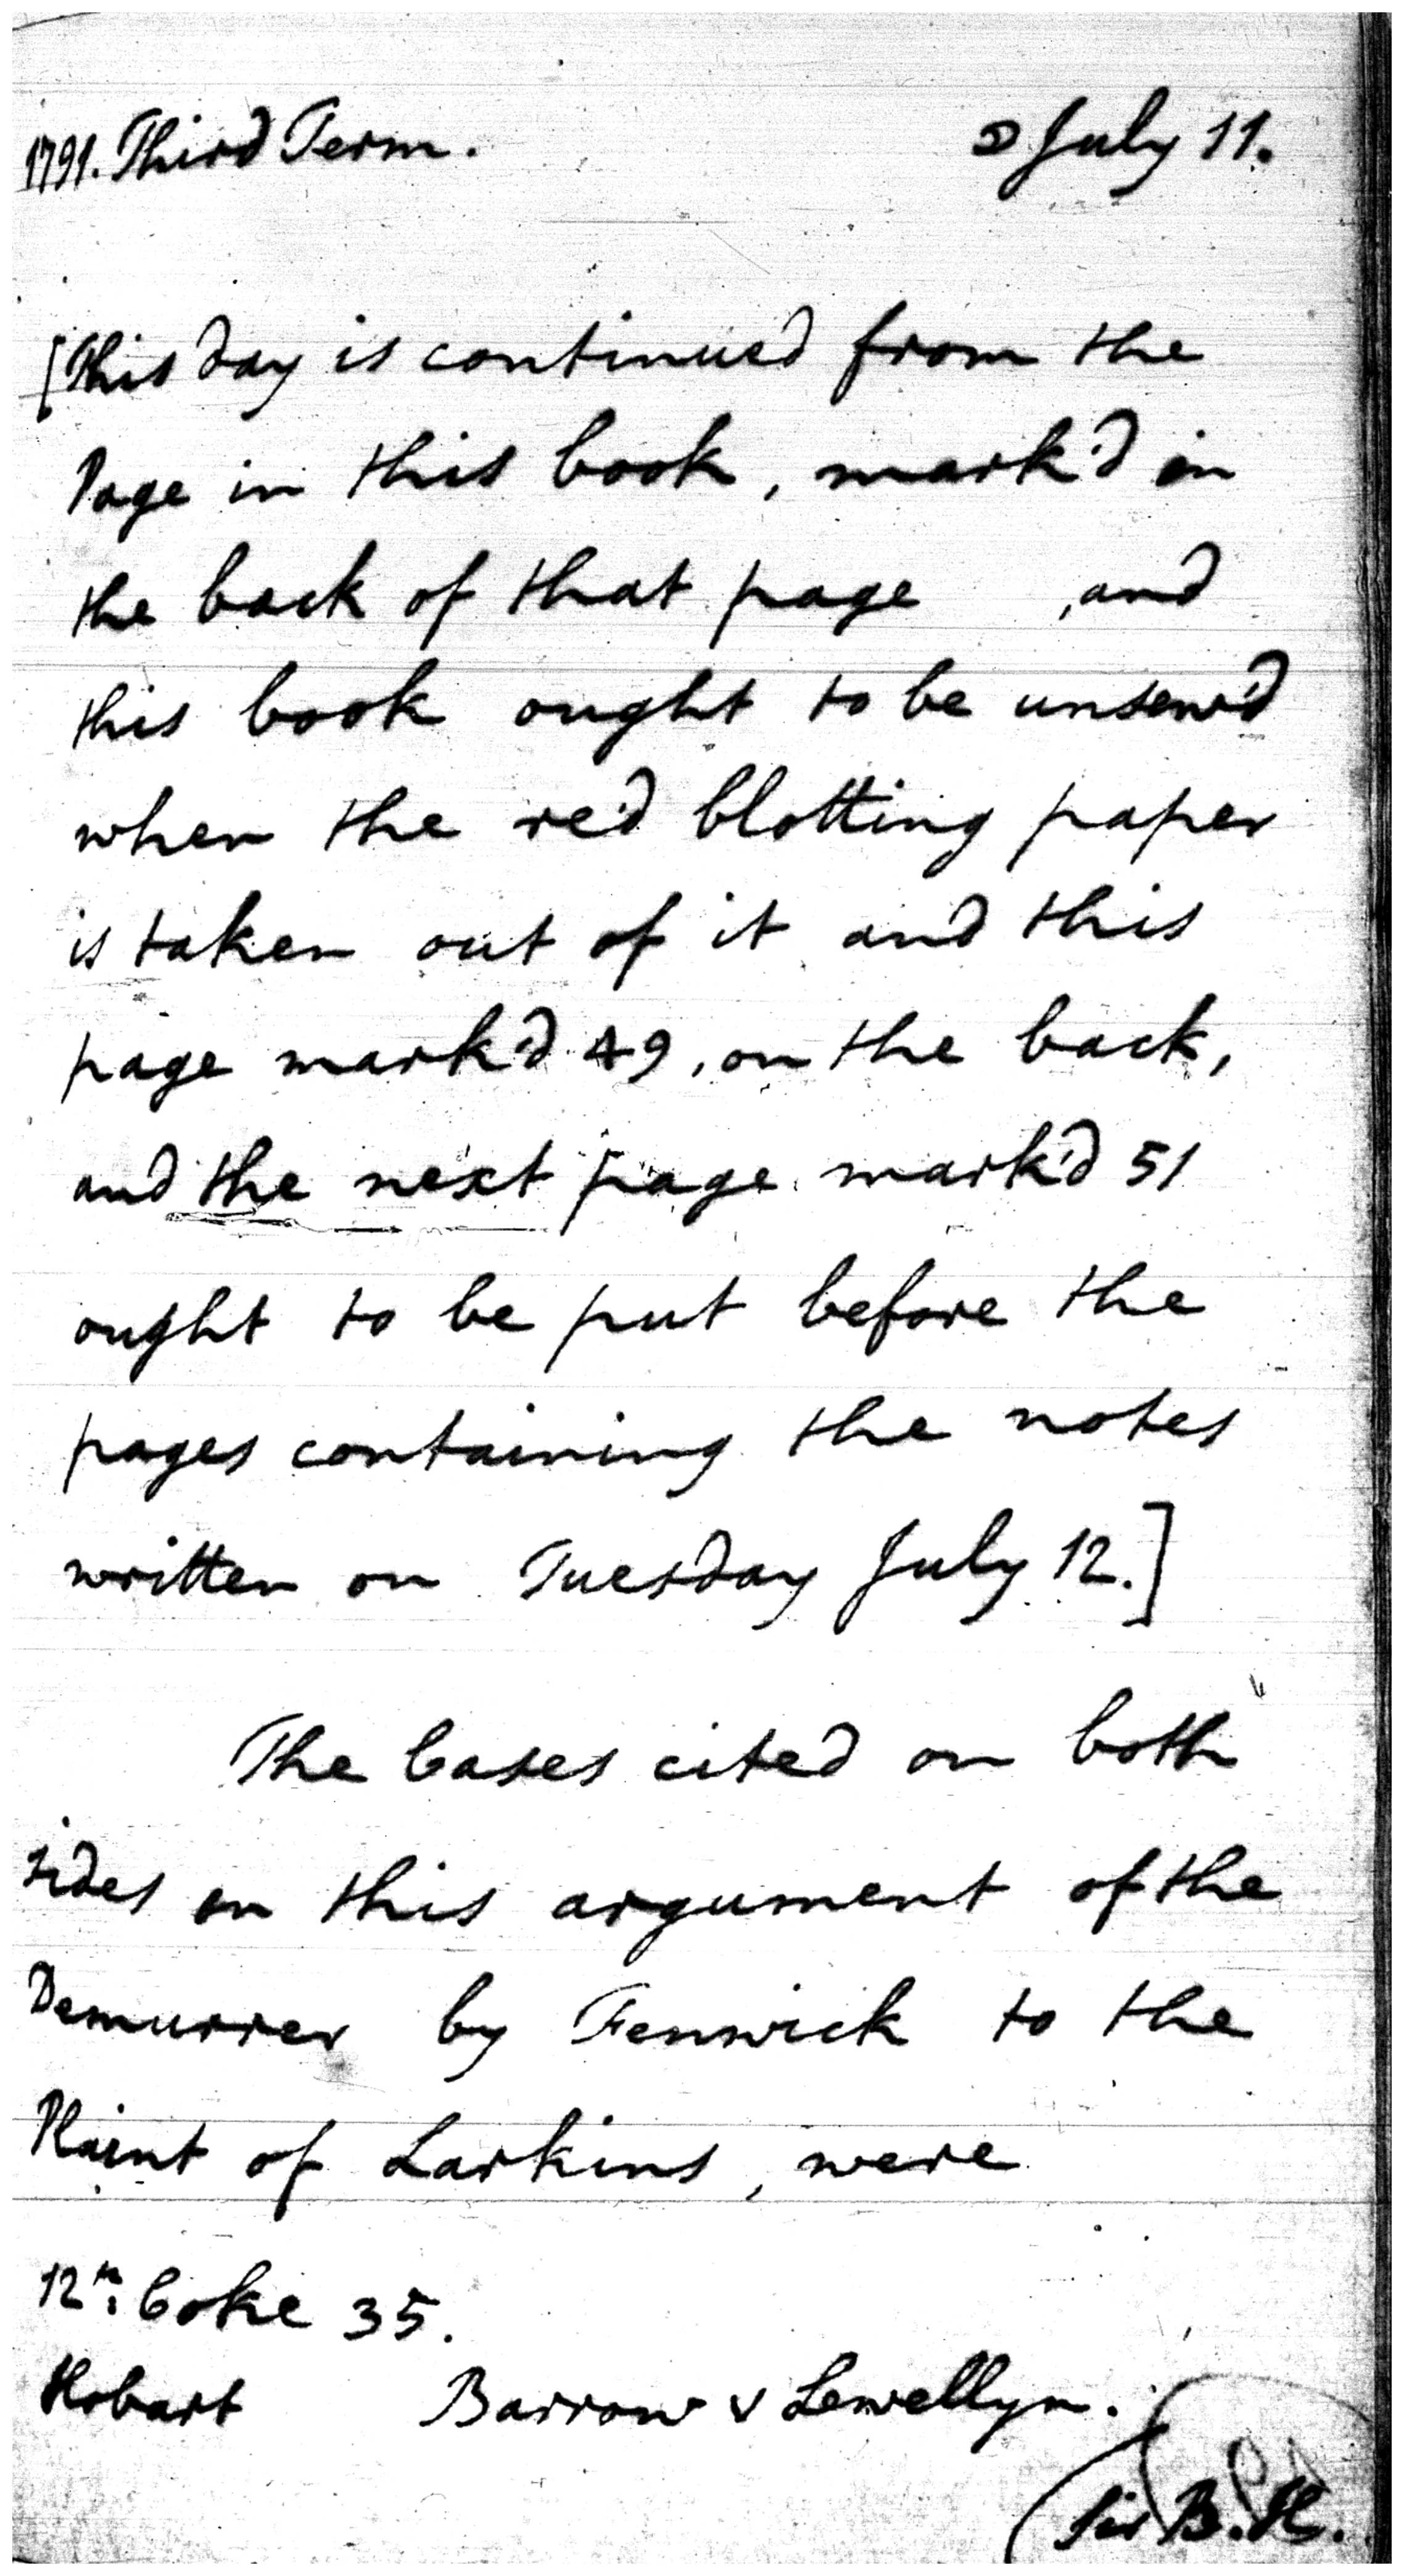 1791. Third Term. ☽ July 11.
[This day is continued from the
Page in this book, mark'd in
the back of that page , and
this book ought to be unsew'd
when the red blotting paper
is taken out of it and this
page mark'd 49, on the back,
and the next page mark'd 51
ought to be put before the
pages containing the notes
written on Tuesday July 12.]
The Cases cited on both
sides on this argument of the
Demurrer by Fenwick to the
Plaint of Larkins, were
12th. Coke 35.
Hobart Barrow v Lewellyn.
(Sir B. H.